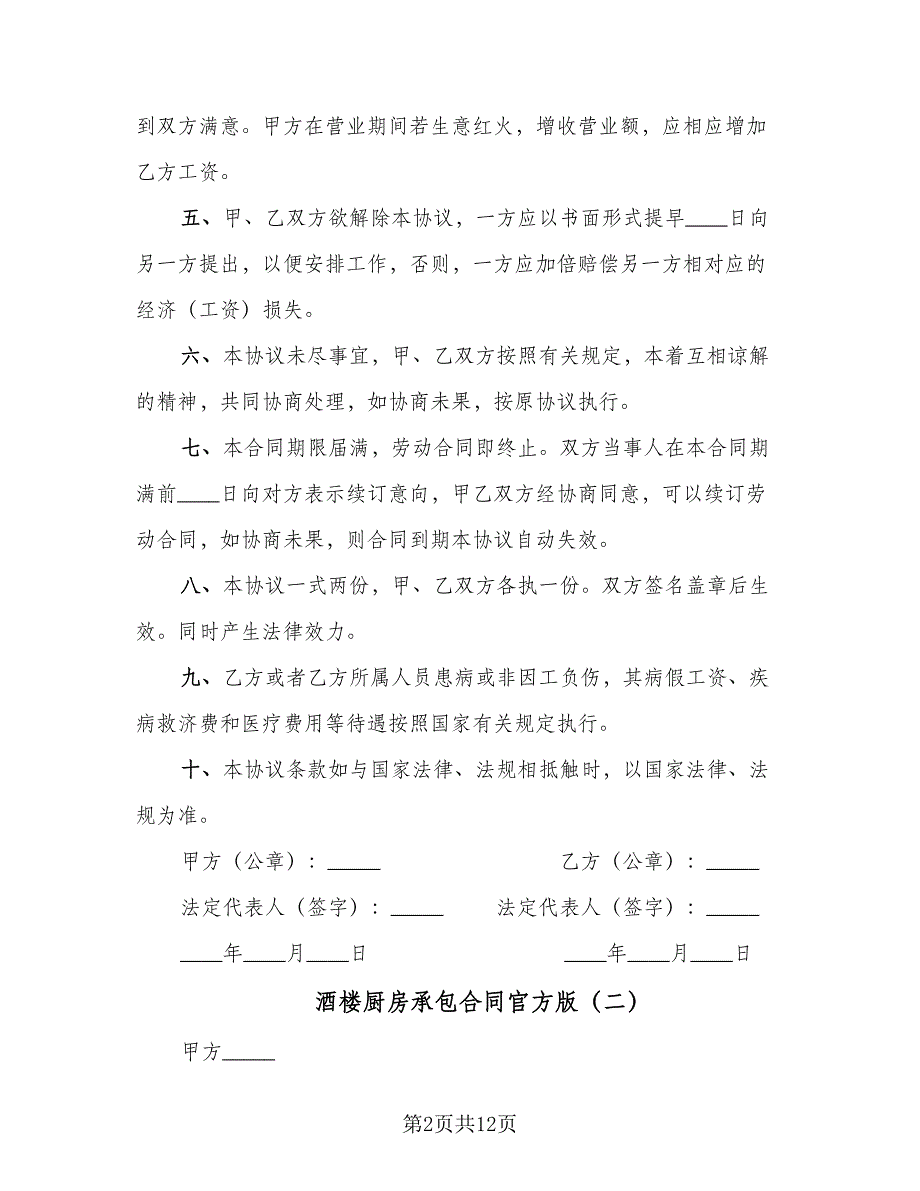 到双方满意。甲方在营业期间若生意红火，增收营业额，应相应增加
乙方工资。
五、甲、乙双方欲解除本协议，一方应以书面形式提早____日向
另一方提出，以便安排工作，否则，一方应加倍赔偿另一方相对应的
经济（工资）损失。
六、本协议未尽事宜，甲、乙双方按照有关规定，本着互相谅解
的精神，共同协商处理，如协商未果，按原协议执行。
七、本合同期限届满，劳动合同即终止。双方当事人在本合同期
满前____日向对方表示续订意向，甲乙双方经协商同意，可以续订劳
动合同，如协商未果，则合同到期本协议自动失效。
八、本协议一式两份，甲、乙双方各执一份。双方签名盖章后生
效。同时产生法律效力。
九、乙方或者乙方所属人员患病或非因工负伤，其病假工资、疾
病救济费和医疗费用等待遇按照国家有关规定执行。
十、本协议条款如与国家法律、法规相抵触时，以国家法律、法
规为准。
甲方（公章）：_____ 乙方（公章）：_____
法定代表人（签字）：_____ 法定代表人（签字）：_____
____年____月____日 ____年____月____日
酒楼厨房承包合同官方版（二）
甲方_____
第2页共12页